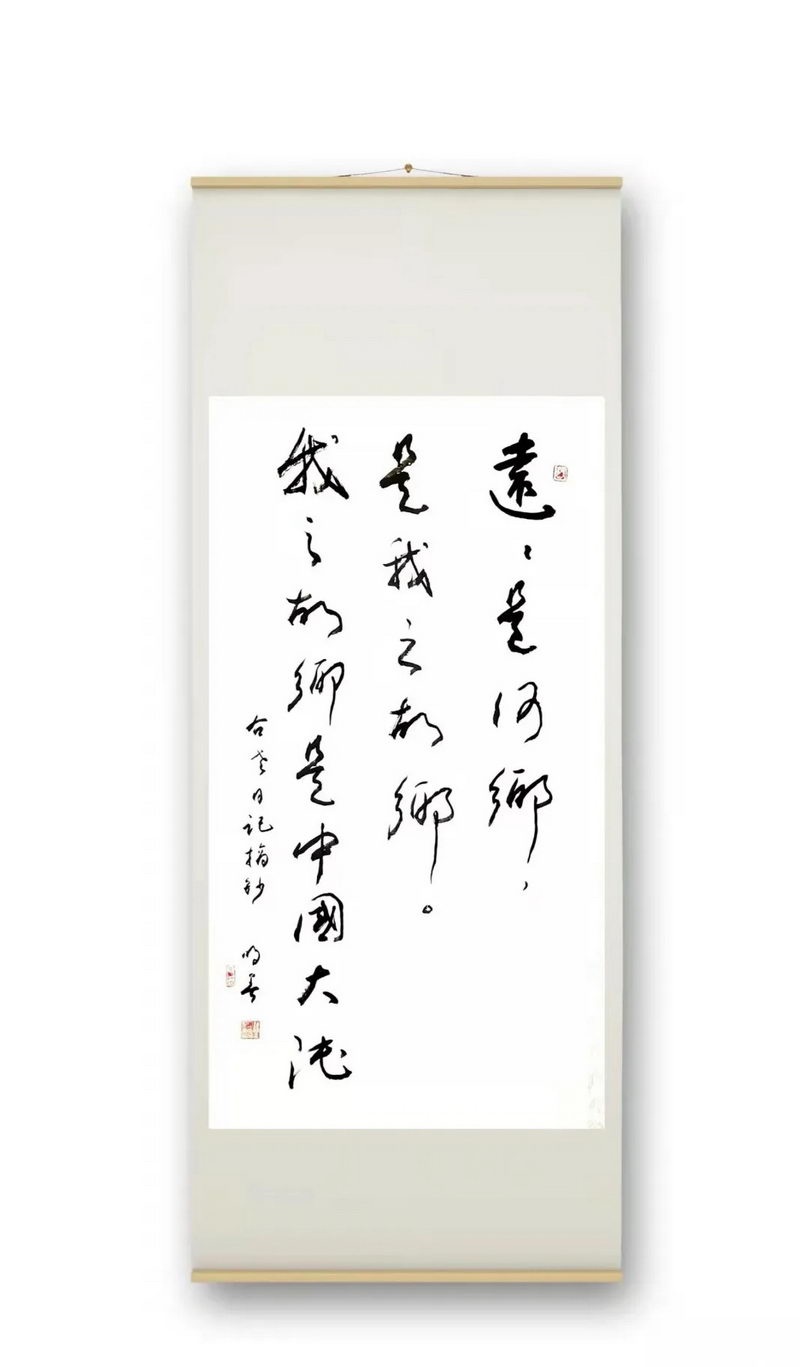 遠〻是何鄉，
是我之故鄉。
我之故鄉是中國大陸
右老日記摘鈔